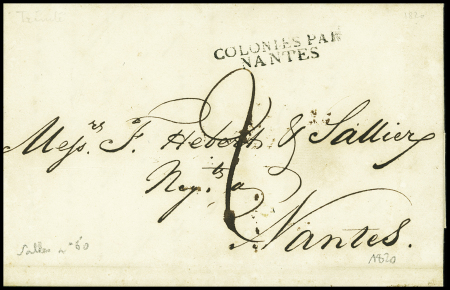 1820
COLONIES PAR
NANTES
2
Mess.rs F. Hebert & Sallier
Neg.ts a
Nantes.
Salles n°60
1820